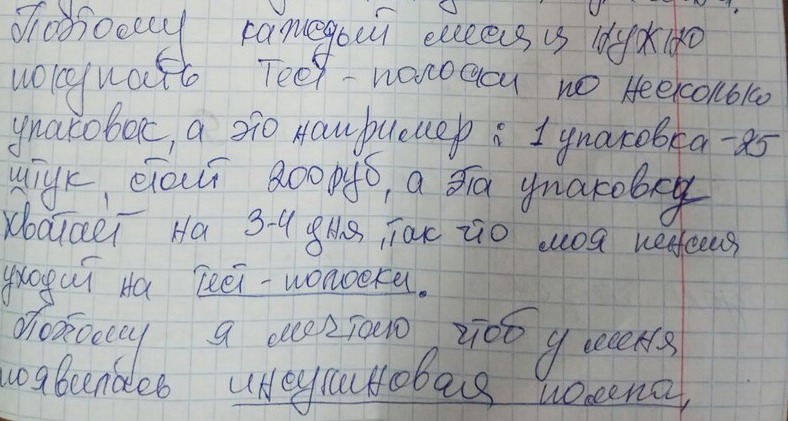 Поэтому каждый месяц нужно
покупать тест-полоски по несколько
упаковок, а это например: 1 упаковка - 25
штук, стоит 200 руб, а эта упаковку
хватает на 3-4 дня, так что моя пенсия
уходит на тест-полоски.
Поэтому я мечтаю чтоб у меня
появилась инсулиновая помпа,